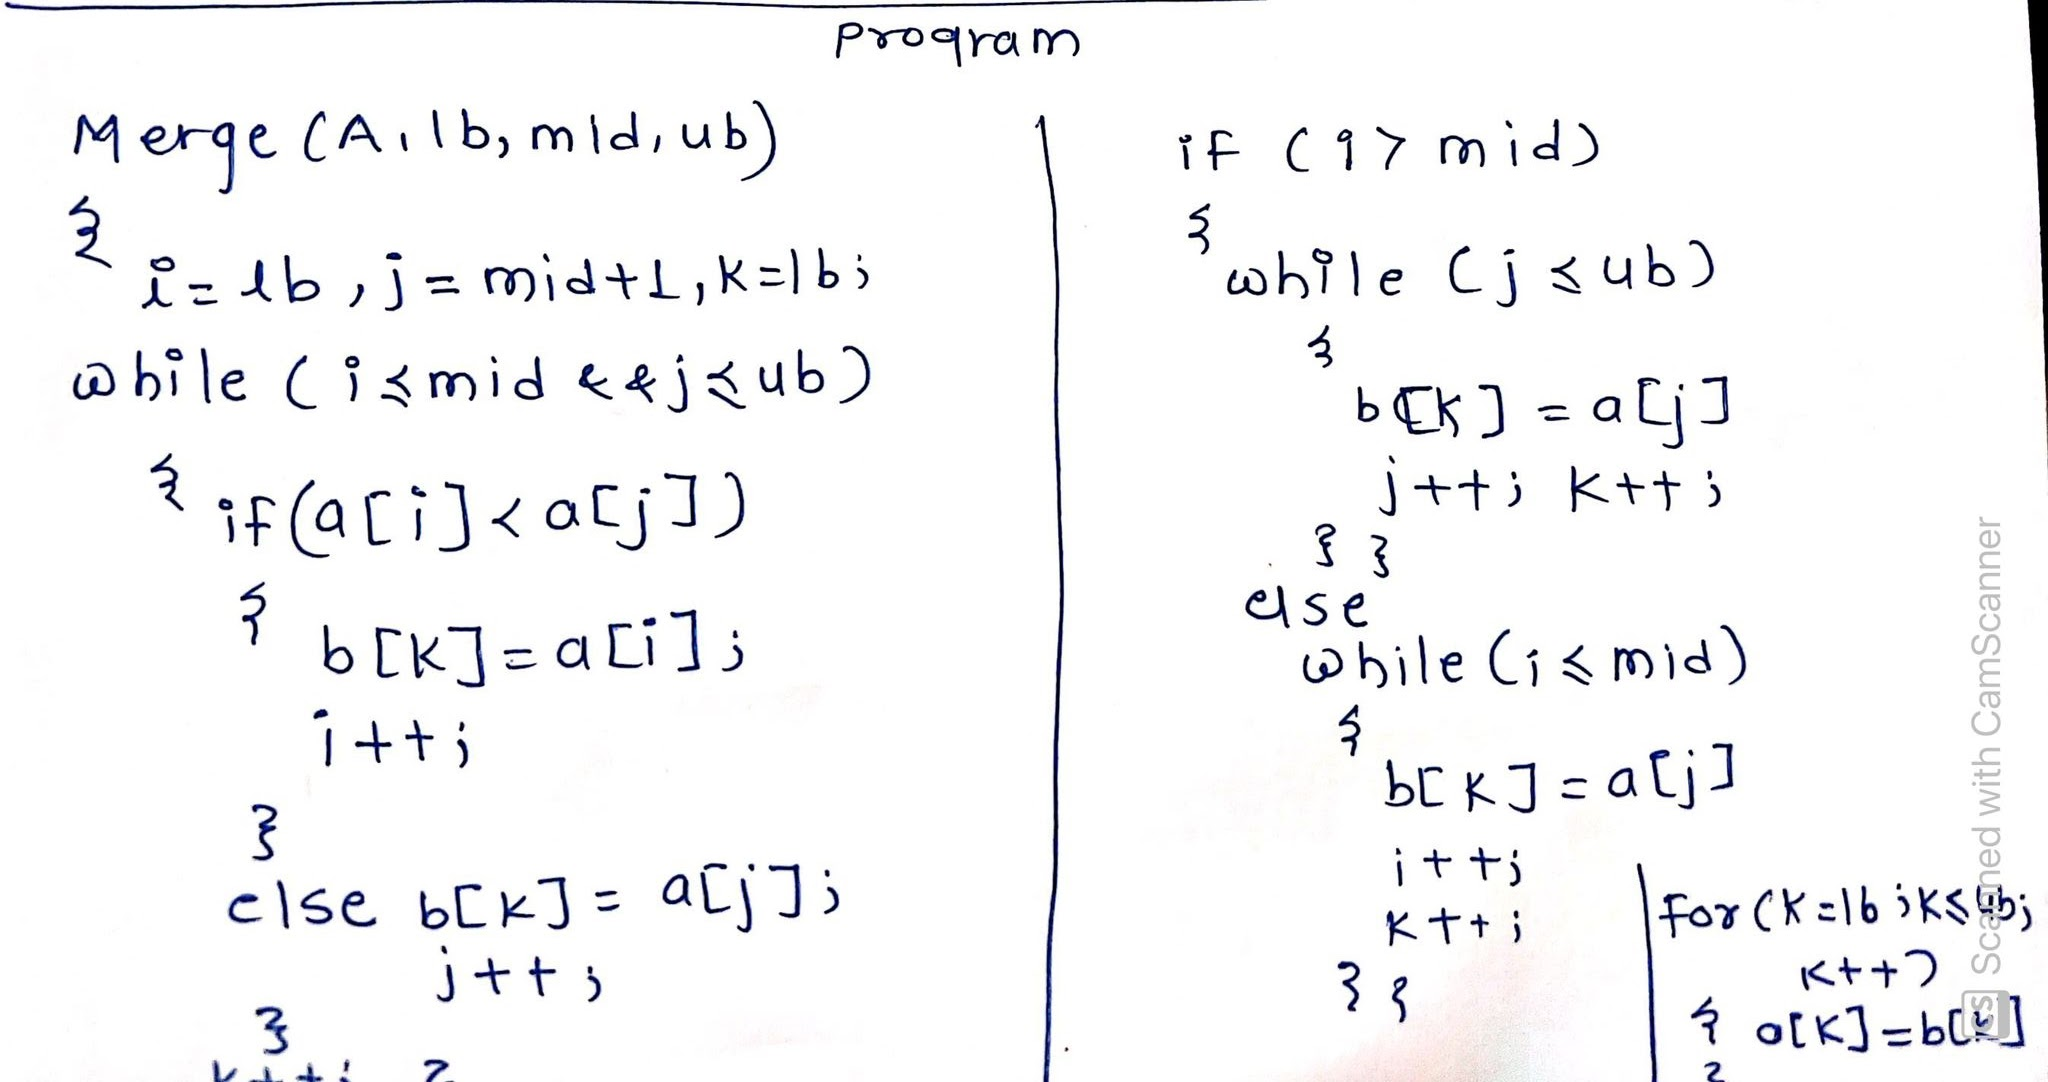 Program
Merge (A, lb, mid, ub)
{
i = lb, j = mid+1, k=lb;
while (i ≤ mid && j ≤ ub)
{ if(a[i] < a[j])
{ b[k] = a[i];
i++;
}
else b[k] = a[j];
j++;
}
k++; }
if (i > mid)
{
while (j ≤ ub)
{
b[k] = a[j]
j++; k++;
} }
else
while (i ≤ mid)
{
b[k] = a[j]
i++;
k++;
} }
For (k=lb; k≤ub;
k++)
{ a[k] = b[k]
}
CS Scanned with CamScanner